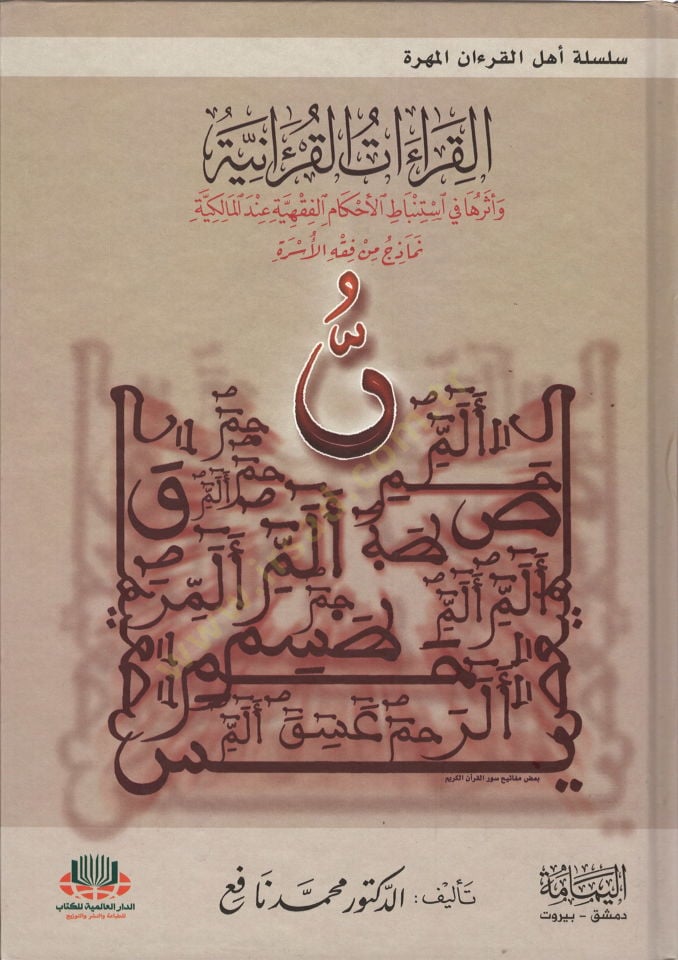 سلسلة أهل القرءان المهرة
القِرَاءَاتُ القُرْءَانِيَّةُ
وَأَثَرُهَا فِي اسْتِنْبَاطِ الأَحْكَامِ الفِقْهِيَّةِ عِنْدَ المَالِكِيَّةِ
نَمَاذِجُ مِنْ فِقْهِ الأُسْرَةِ
نُّ
الٓمٓ
حمٓ
صٓ
قٓ
طه
الٓمٓ
الٓمٓ
الٓمٓرٓ
الٓمٓ
الٓمٓ
حمٓ
طسٓمٓ
الٓرٓ
حمٓ
عٓسٓقٓ
الٓمٓ
يسٓ
بعض مفاتيح سور القرآن الكريم
تأليف: الدكتور محمد نافع
اليمامة
دمشق - بيروت
الدار العالمية للكتاب
للطباعة والنشر والتوزيع